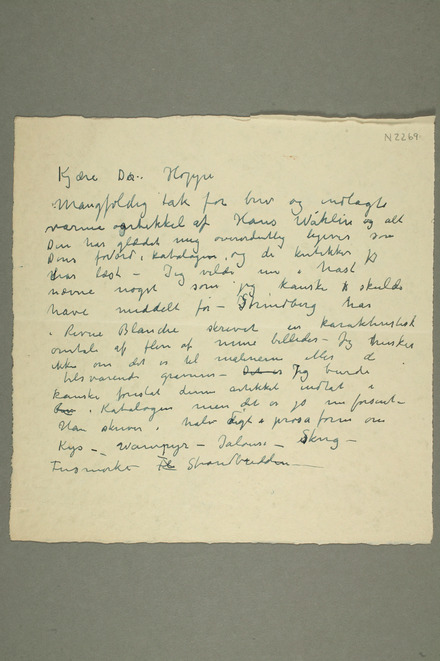 N 2269
Kjære Dr. Hoppe
Mangfoldig tak for brev og indlagte
varme artikkel af Hans Wáhlin og alt
Den har glædet mig overordentlig ligesom
Deres forord i katalogen, og de kritikker jeg
har læst – Jeg vilde nu i hast
nævne noget som jeg kanske skulde
have meddelt før – Strindberg har
i Revue Blanche skrevet en karakteristisk
omtale af flere af mine billeder – Jeg husker
ikke om det er til malerierne eller de
tilsvarende gravurer – Det er Jeg burde
kanske foreslået denne artikkel indtat i
katalogen men det er jo nu forsent –
Han skriver i halv digt & prosa form om
Kys – Wampyr – Jalousi – Skrig –
Strandbredden –